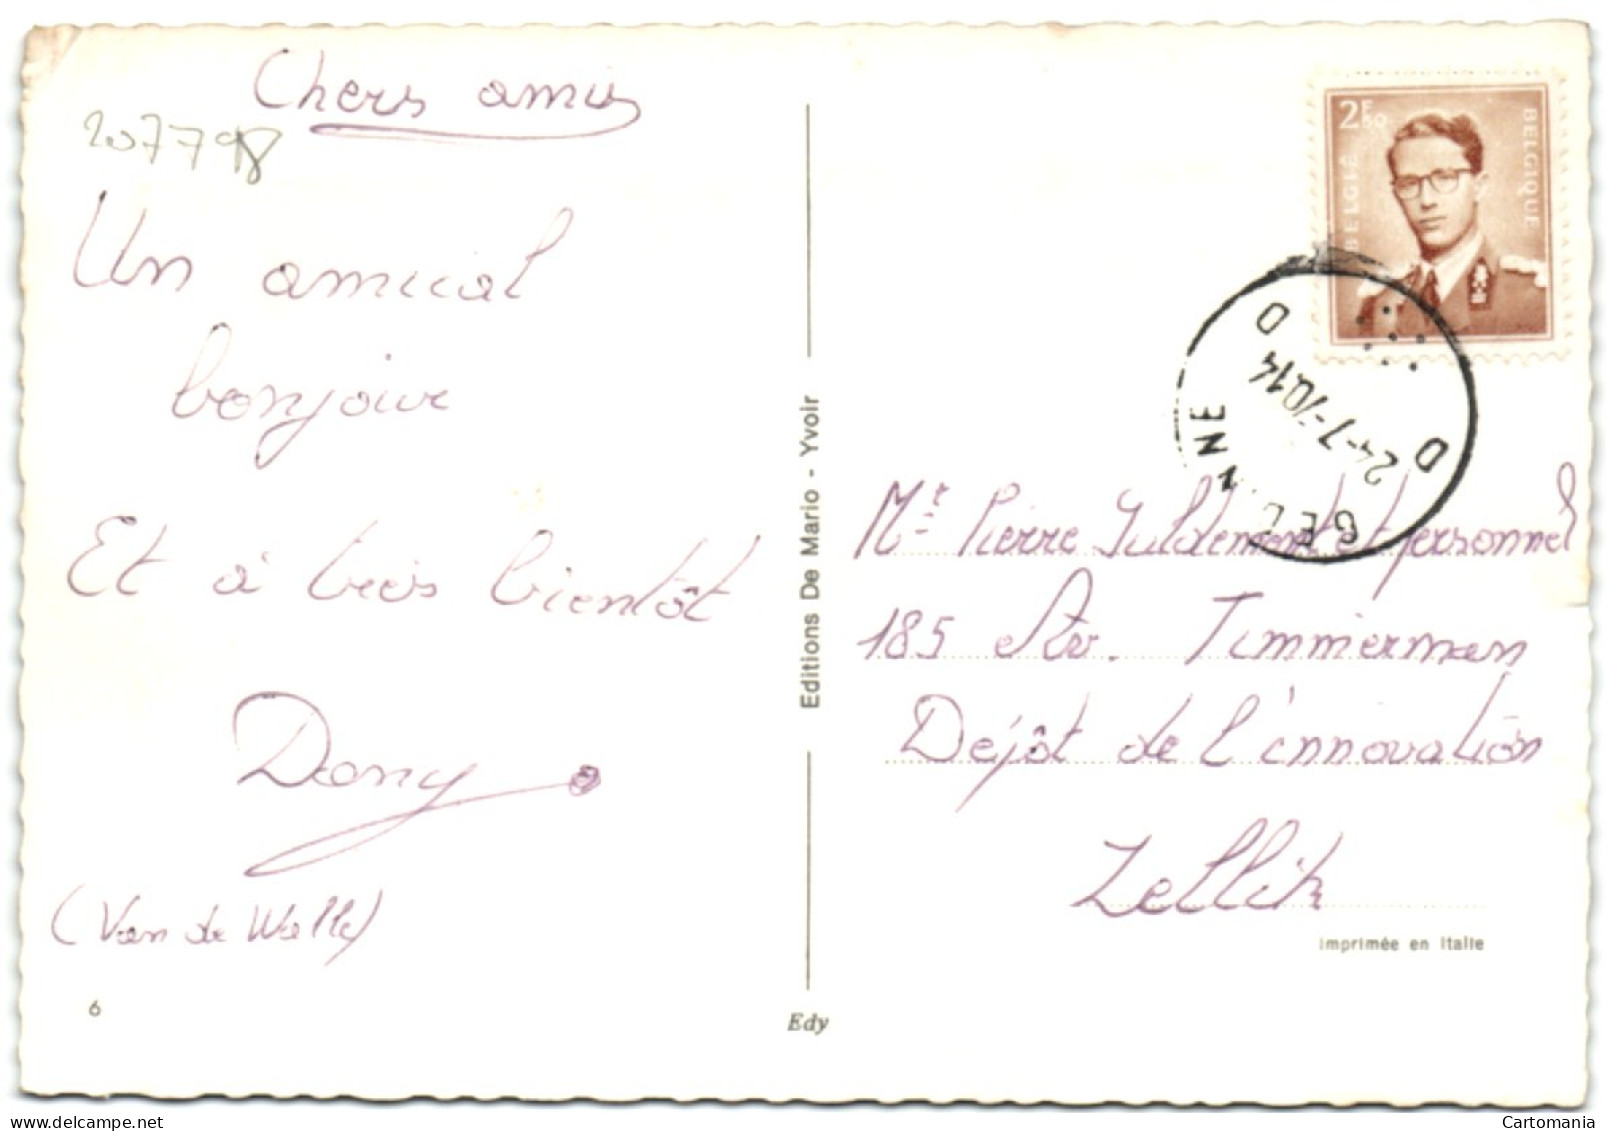 Chers amis
207798
Un amical
bonjour
Et à très bientôt
Dony
(Van de Walle)
6
Editions De Mario - Yvoir
Edy
2F50
BELGIË
BELGIQUE
D
24-7-70 14
D
Mr Pierre Guldemont et personnel
185 Av. Timmerman
Dépôt de l'innovation
Zellik
Imprimée en Italie
delcampe.net
Cartomania